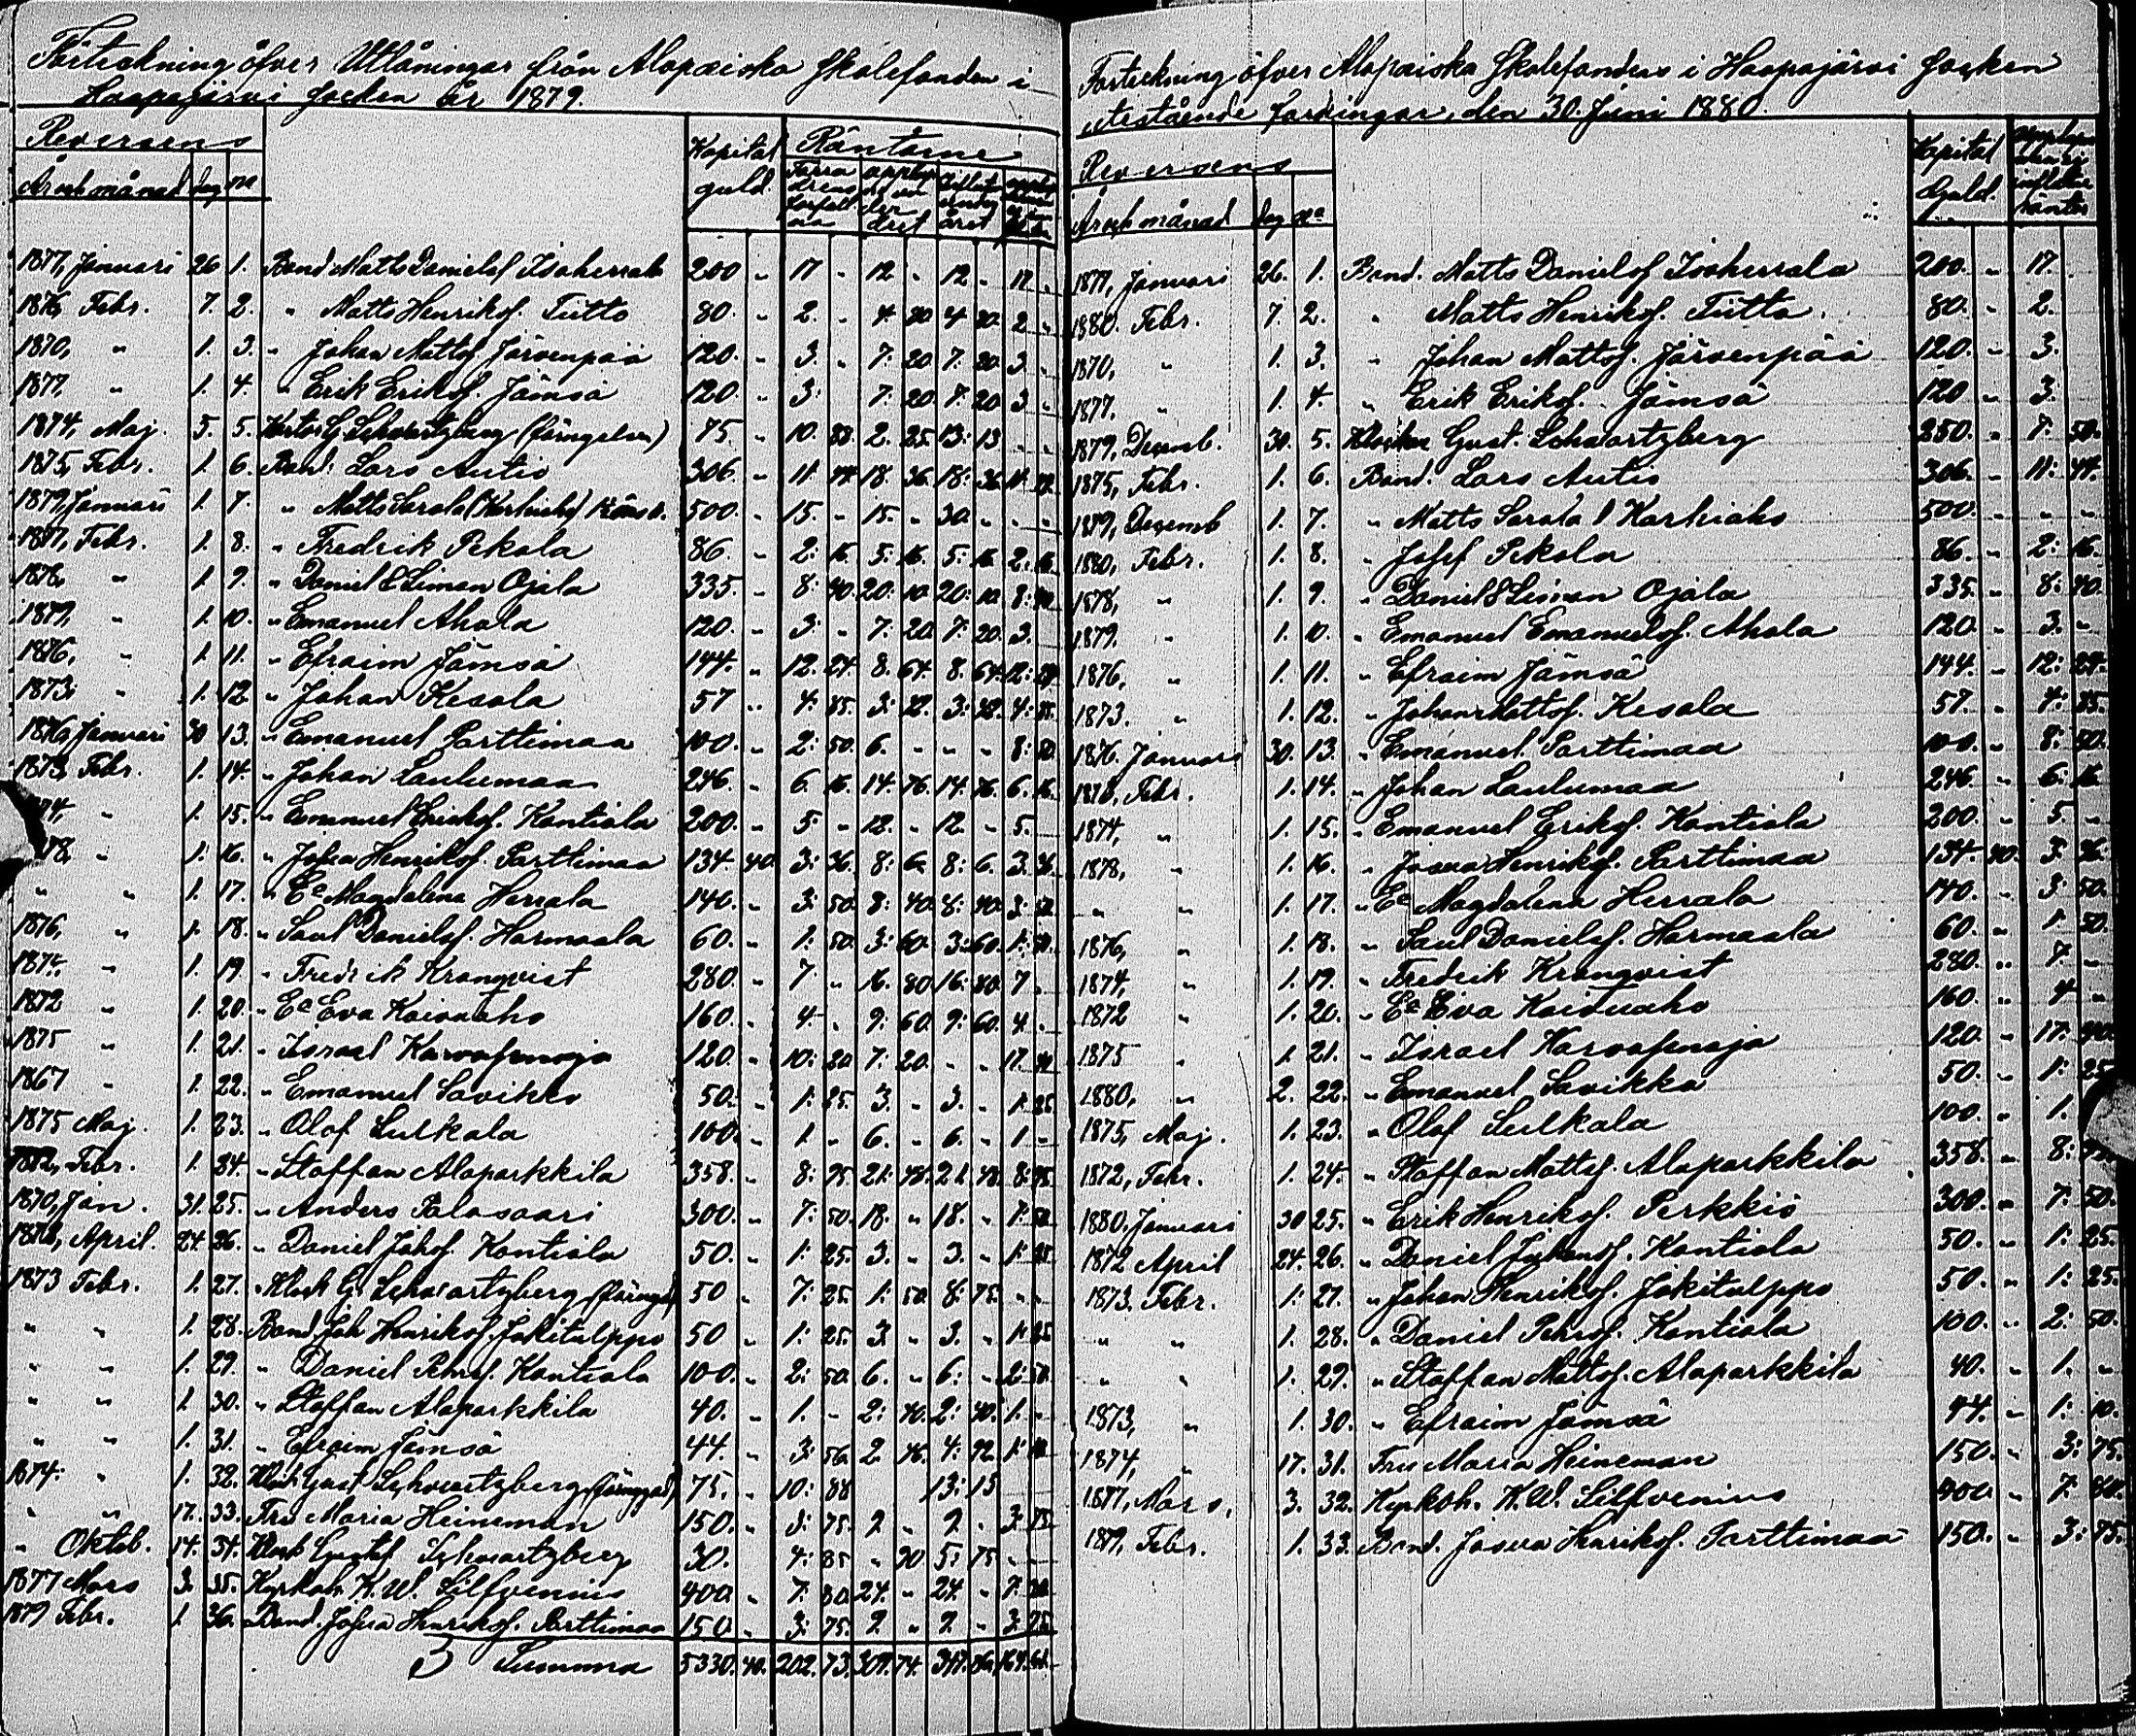 Förteckning öfver Utlåningar från Alapæiska Skolefonden i
Haapajärvi Socken år 1879.
Reversens Kapital Räntorne
År och månad dag No guld
1877, Januari 26 1. Bond Matts Danielss Isoherrala 200 " 17 " 12 " 12 " 17 "
1876, Febr. 7. 2. " Matts Henrikss. Tiitto 80. " 2. " 4. 80 4 80. 2 "
1870, " 1. 3. " Johan Mattss Järvenpää 120. " 3. " 7. 20 7. 20 3 "
1877, " 1. 4. " Erik Erikss. Jämsä 120. " 3. 7. 20 7. 20 3 "
1874, Maj. 5. 5. G. Schvartzberg 75. " 10. 88. 2. 25. 13: 13 " "
1875, Febr. 1. 6. Bond: Lars Autio 306. " 11. 44 18. 36. 18. 36 11. 44
1879, Januari 1. 7. " Matts Sarala (Karhiaho) 500. " 15. " 15. " 30. " " "
1877, Febr. 1. 8. " Fredrik Pekola 86. " 2: 16. 5: 16. 5: 16 2: 16.
1878, " 1. 9. " Daniel & Siman Ojala 335. " 8: 40. 20: 10. 20: 10. 8: 40
1879, " 1. 10. " Emanuel Ahola 120. " 3: " 7. 20. 7: 20. 3.
1876, " 1. 11. " Efraim Jämsä 144. " 12. 24 8. 64. 8. 64. 12: 24
1873. " 1. 12. " Johan Kesola 57 " 4: 85. 3: 42. 3: 42. 4: 85.
1876, Januari 30 13. " Emanuel Parttimaa 100. " 2: 50. 6. " " " 8: 50
1873, Febr. 1. 14. " Johan Laulumaa 246. " 6. 16. 14. 76. 14. 76. 6. 16.
" 1. 15. " Emanuel Erikss. Kontiola 200. " 5. " 12. " 12. " 5.
" 1. 16. " Josua Henrikss. Parttimaa 134. 40. 3: 36. 8: 6. 8: 6. 3. 36.
" " 1. 17. " Ea Magdalena Herrala 140. " 3: 50. 8: 40. 8: 40. 3: 50
1876, " 1. 18. " Saul Danielss. Harmaala 60. " 1: 50. 3: 60. 3: 60. 1: 50.
1874. " 1. 19. " Fredrik Kronqvist 280. " 7. " 16. 80. 16: 80. 7 "
1872 " 1. 20. " Ea Eva Koivuaho 160. " 4. " 9: 60. 9: 60. 4 "
1875 " 1. 21. " Israel Karvasenoja 120. " 10: 20 7: 20. " " 17. 40
1867 " 1. 22. " Emanuel Savikko 50. " 1: 25. 3. " 3. " 1: 25
1875 Maj. 1. 23. " Olof Sulkala 100. " 1. " 6. " 6. " 1 "
1872, Febr. 1. 24. " Staffan Alaparkkila 358. " 8: 95. 21: 48. 21. 48. 8: 95.
1870, Jan. 31. 25. " Anders Palosaari 300. " 7: 50. 18. " 18. " 7: 50
1872, April. 24. 26. " Daniel Johss. Kontiola 50. " 1: 25. 3. " 3. " 1: 25
1873 Febr. 1. 27. Klock G. Schvartzberg 50 " 7: 25. 1: 50. 8: 75. " "
" " 1. 28. Bond Joh Henrikss. Jokitulppo 50 " 1: 25. 3 " 3. " 1: 25
" " 1. 29. " Daniel Pehrss. Kontiola 100. " 2: 50. 6. " 6: " 2: 50.
" " 1. 30. " Staffan Alaparkkila 40. " 1. " 2: 40. 2: 40. 1. "
" " 1. 31. " Efraim Jämsä 44. " 3: 56. 2. 76. 4: 92. 1: 10
1874. " 1. 32. Klock Gust Schvartzberg 75. " 10: 88 13: 13
" " 17. 33. Fru Maria Heineman 150. " 3: 75. 9. " 9. " 3: 75.
" Oktob. 14. 34. Klock Gustaf Schvartzberg 30. 4: 85 " 90 5: 75 " "
1877 Mars 3. 35. Kyrkoh. K. W. Silfvenius 400. " 7. 80. 24. " 24. " 7: 80
1879 Febr. 1. 36. Bond. Josua Henrikss. Parttimaa 150. " 3: 75. 9 " 9. " 3: 75
Summa 5330. 40. 202. 73. 309. 74.
Förteckning öfver Alapæiska Skolefondens i Haapajärvi Socken
utestående fordringar, den 30. Juni 1880.
Reversens Kapital
År och månad dag No Guld.
1877, Januari 26. 1. Bond. Matts Danielss Isoherrala 200. " 17.
1880. Febr. 7. 2. " Matts Henrikss. Tiitto. 80. " 2.
1870, " 1. 3. " Johan Mattss. Järvenpää 120. " 3.
1877. " 1. 4. " Erik Erikss. Jämsä 120 " 3.
1879, Decemb. 30. 5. Klockar Gust. Schvartzberg 250. " 7. 50.
1875, Febr. 1. 6. Bond. Lars Autio 306. " 11: 44.
1879, Decemb 1. 7. " Matts Sarala / Karhiaho 500. "
1880, Febr. 1. 8. " Josef Pekola 86. " 2: 16.
1878, " 1. 9. " Daniel & Siman Ojala 335. " 8: 40.
1879. " 1. 10. " Emanuel Emanuelss. Ahola 120. " 3. "
1876, " 1. 11. " Efraim Jämsä 144. " 12: 24.
1873. " 1. 12. " Johan Mattss. Kesola 57. " 4: 85.
1876. Januari 30. 13. " Emanuel Parttimaa 100. " 8: 50.
Febr. 1. 14. " Johan Laulumaa 246. " 6: 16.
1874, " 1. 15. " Emanuel Erikss. Kontiola 200. " 5. "
1878, " 1. 16. " Josua Henrikss. Parttimaa 134. 40. 3: 36.
" " 1. 17. " Ea Magdalena Herrala 140. " 3: 50.
1876, " 1. 18. " Saul Danielss. Harmaala 60. " 1. 50.
1874, " 1. 19. " Fredrik Kronqvist 280. " 7 "
1872 " 1. 20. " Ea Eva Koivuaho 160. " 4 "
1875 " 1. 21. " Israel Karvasenoja 120. " 17: 40.
1880, " 2. 22. " Emanuel Savikko 50. " 1: 25
1875, Maj. 1. 23. " Olof Sulkala 100. " 1.
1872, Febr. 1. 24. " Staffan Mattss. Alaparkkila 358. " 8:
1880. Januari 30 25. " Erik Henrikss. Perkkiö 300. " 7: 50.
1872 April 24. 26. " Daniel Johanss. Kontiola 50. " 1: 25.
1873. Febr. 1. 27. " Johan Henrikss. Jokitulppo 50. " 1: 25.
" " 1. 28. " Daniel Pehrss. Kontiola 100. " 2: 50.
" " 1. 29. " Staffan Mattss. Alaparkkila 40. " 1. "
1873, " 1. 30. " Efraim Jämsä 44. " 1: 10.
1874, " 17. 31. Fru Maria Heineman 150. " 3: 75.
1877, Mars, 3. 32. Kyrkoh. K. W. Silfvenius 400. " 7. 80.
1879, Febr. 1. 33. Bond. Josua Henrikss. Parttimaa 150. " 3: 75.